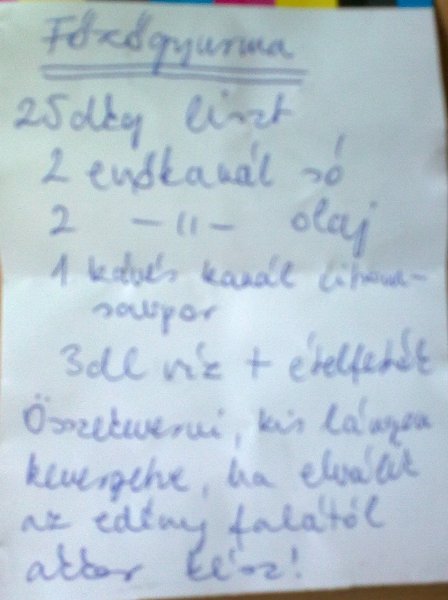 Főzőgyurma
25dkg liszt
2 evőkanál só
2 -"- olaj
1 kávés kanál citrom-
savpor
3dl víz + ételfesték
Összekeverni, kis lángon
kevergetve, ha elválik
az edény falától
akkor kész!